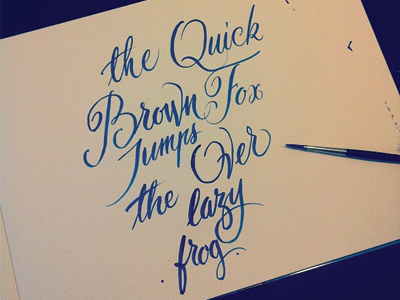 the Quick
Brown Fox
Jumps Over
the lazy
. frog .